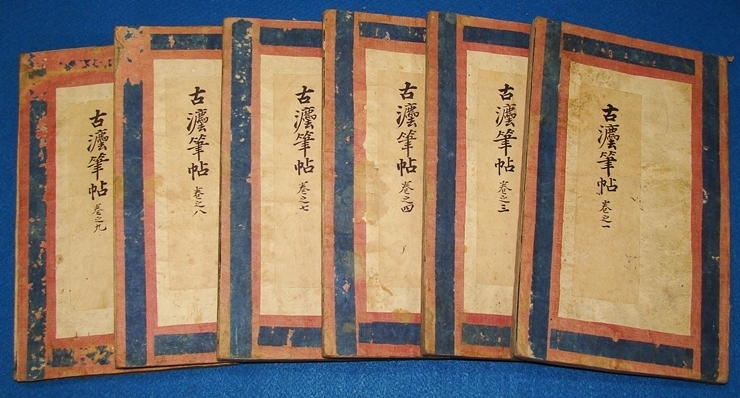 古灋筆帖 卷之一
古灋筆帖 卷之三
古灋筆帖 卷之四
古灋筆帖 卷之七
古灋筆帖 卷之八
古灋筆帖 卷之九